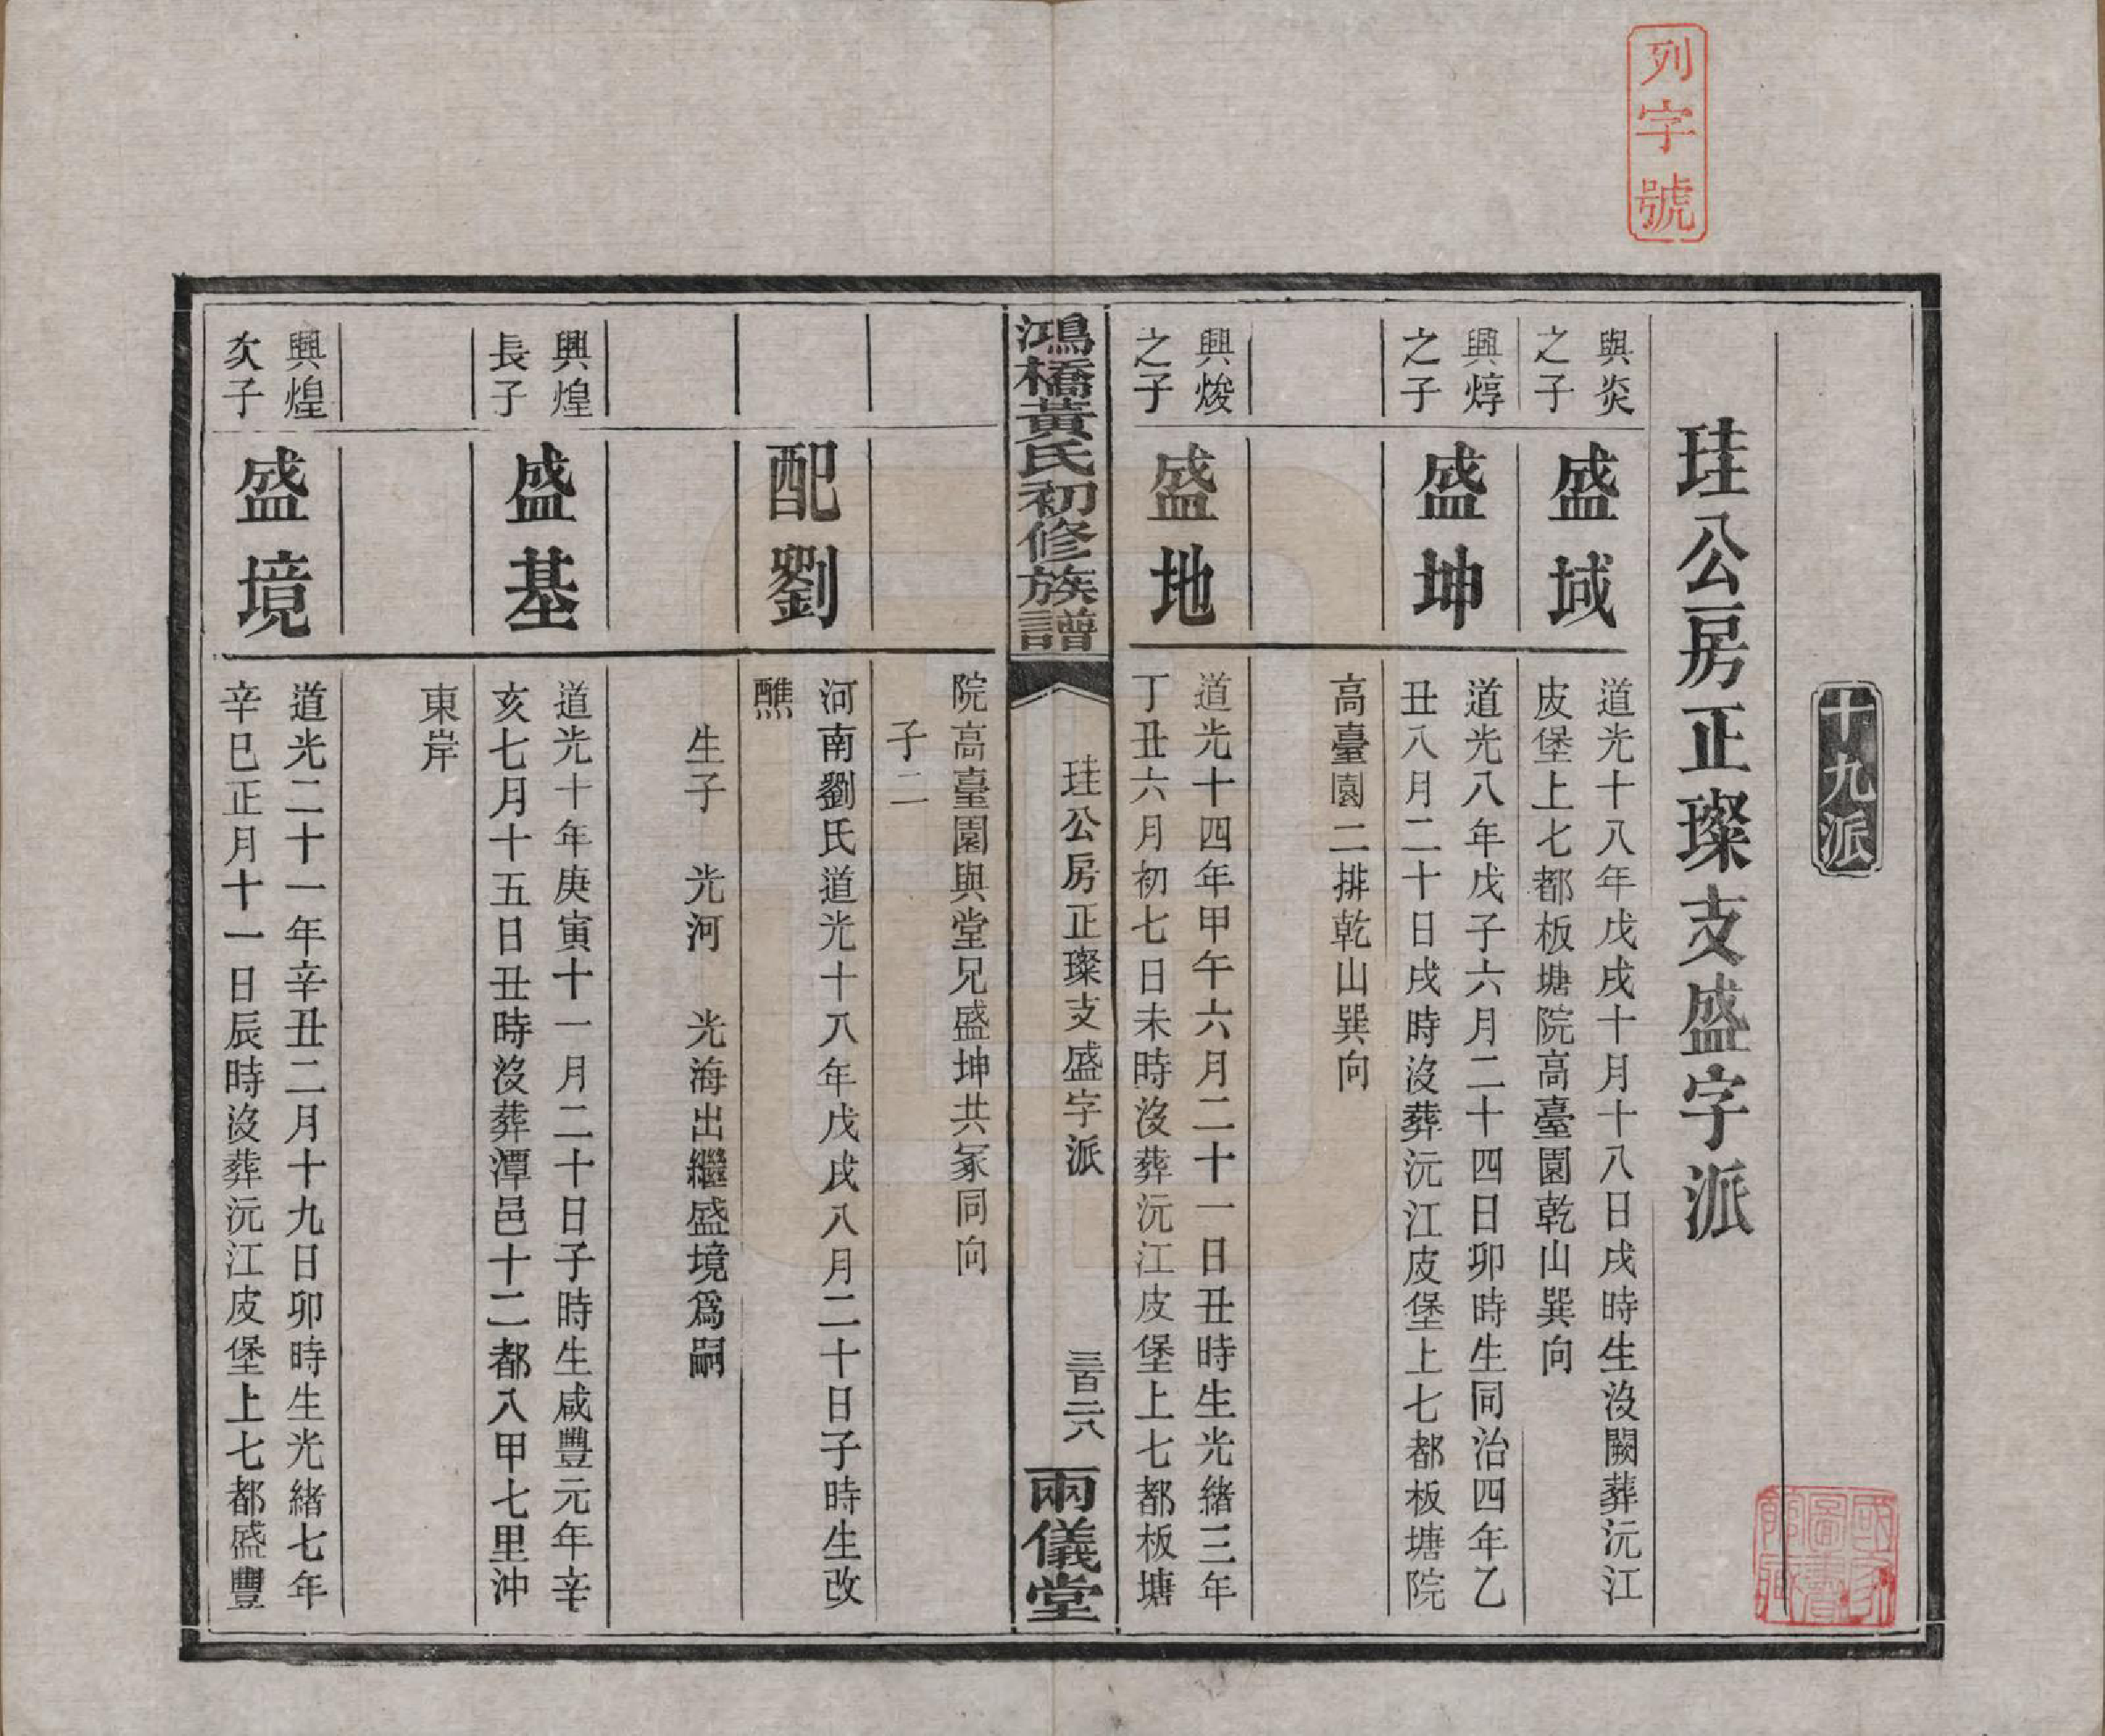 列字號
十九派
珪公房正璨支盛字派
與炎
之子
盛域
道光十八年戊戌十月十八日戌時生沒闕葬沅江
皮堡上七都板塘院高臺園乾山巽向
興焞
之子
盛坤
道光八年戊子六月二十四日卯時生同治四年乙
丑八月二十日戌時沒葬沅江皮堡上七都板塘院
高臺園二排乾山巽向
興焌
之子
盛地
道光十四年甲午六月二十一日丑時生光緒三年
丁丑六月初七日未時沒葬沅江皮堡上七都板塘
鴻橋黃氏初修族譜
珪公房正璨支盛字派
三百二八
兩儀堂
院高臺園與堂兄盛坤共冢同向
子二
配劉
河南劉氏道光十八年戊戌八月二十日子時生改
醮
生子 光河 光海出繼盛境爲嗣
興煌
長子
盛基
道光十年庚寅十一月二十日子時生咸豐元年辛
亥七月十五日丑時沒葬潭邑十二都八甲七里沖
東岸
興煌
次子
盛境
道光二十一年辛丑二月十九日卯時生光緒七年
辛巳正月十一日辰時沒葬沅江皮堡上七都盛豐
國家
圖書
館藏